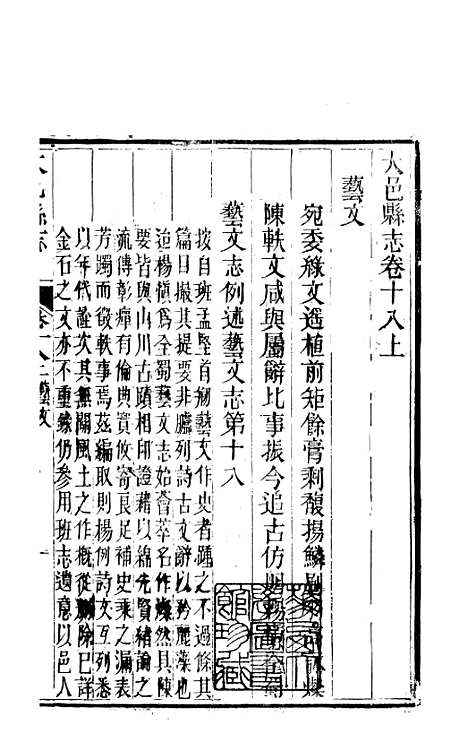 大邑縣志卷十八上
藝文
宛委綠文遞植前矩餘膏剩馥揚鱗
陳軼文咸與屬辭比事振今追古仿
藝文志例述藝文志第十八
按自班孟堅首剏藝文作史者踵之不過條其
篇目撮其提要非臚列詩古文辭以矜麗藻也
迨楊愼爲全蜀藝文志始薈萃名作燦然具陳
要皆與山川古蹟相印證藉以緜先賢緒論之
流傳彰癉有倫典實攸寄良足補史乘之漏表
芳躅而徵軼事焉茲編取則楊例詩文互列悉
以年代詮次其無關風土之作槪從刪除已詳
金石之文亦不重錄仍參用班志遺意以邑人
大邑縣志
卷十八上藝文
一
館珍藏